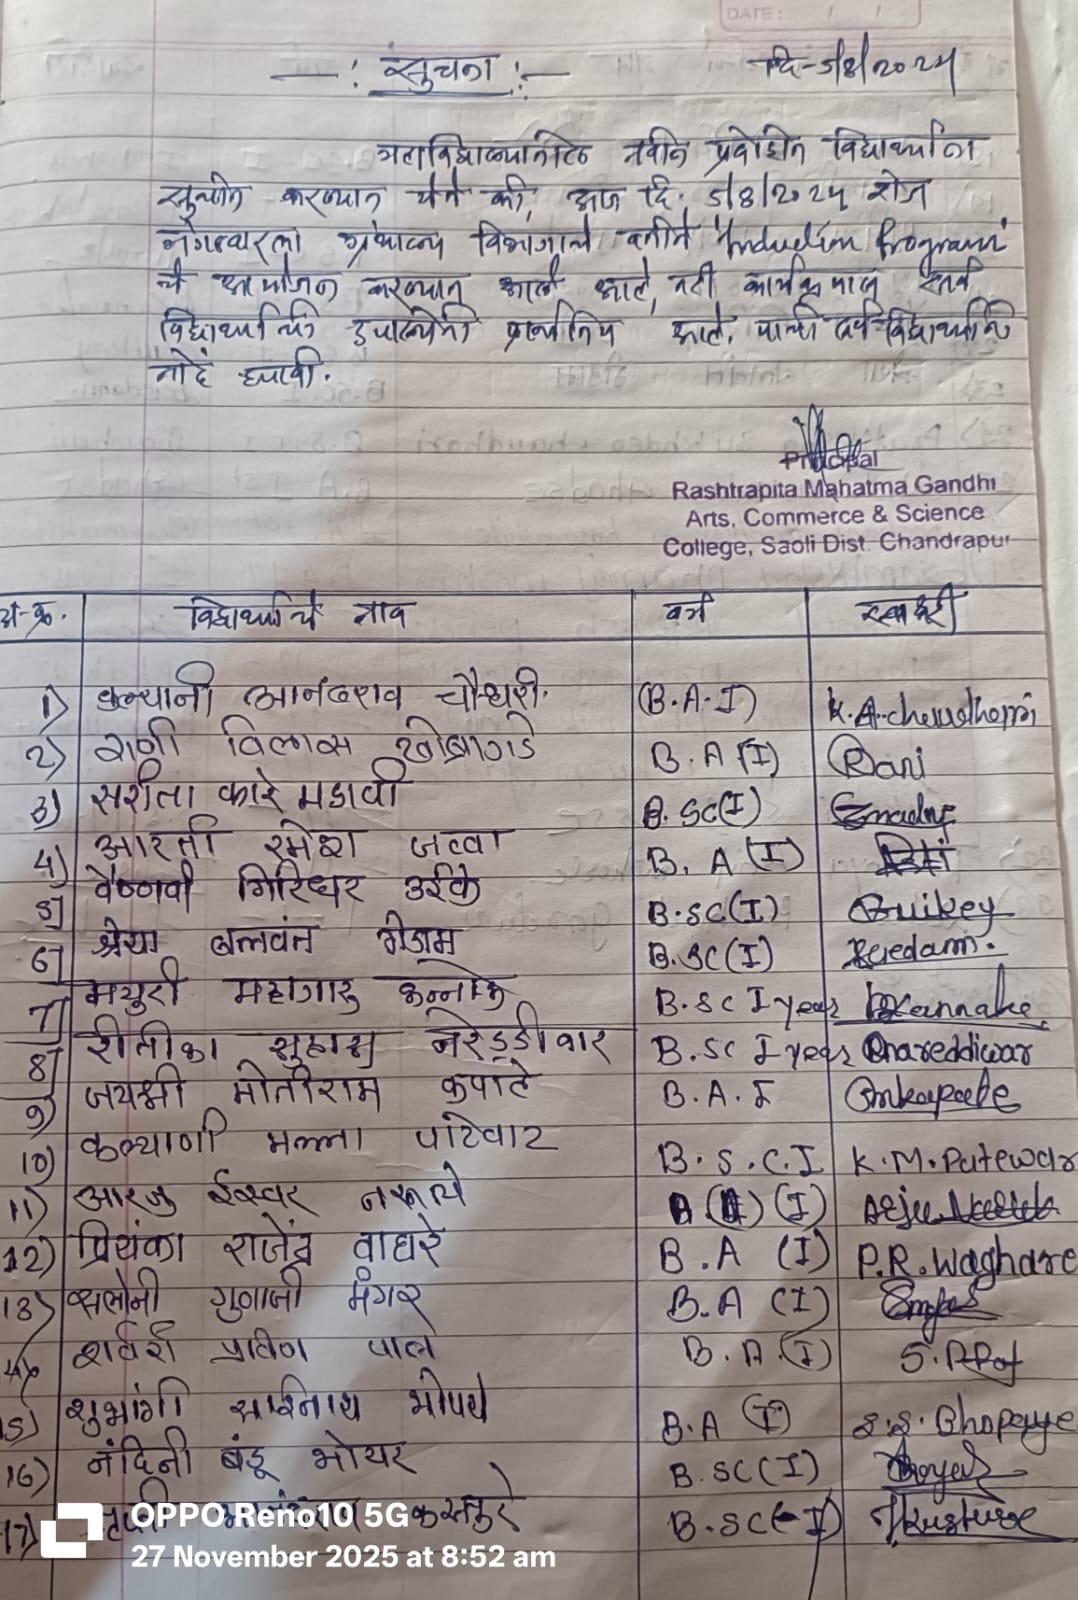 DATE: / /
—: सुचना :—
दि-5/8/2025
महाविद्यालयातील नवीन प्रवेशित विद्यार्थ्यांना
सुचीत करण्यात येते की, आज दि. 5/8/2025 रोज
मंगळवारला ग्रंथालय विभागाचे वतीने "Induction Program"
चे आयोजन करण्यात आले आहे, तरी कार्यक्रमाला सर्व
विद्यार्थ्यांची उपस्थिती प्रार्थनिय आहे. याची सर्व विद्यार्थ्यांनी
नोंद घ्यावी.
Principal
Rashtrapita Mahatma Gandhi
Arts, Commerce & Science
College, Saoli Dist. Chandrapur
अ-क्र. विद्यार्थ्याचे नाव वर्ग स्वाक्षरी
1) कल्यानी आनंदराव चौधरी. (B.A-I) K.A.choudhari
2) राणी विलास खोब्रागडे B.A (I) Rani
3) सरीता कारे मडावी B.SC(I)
4) आरती रमेश B.A (I)
5) वैष्णवी गिरिधर उईके B.SC(I) Buikey
6) श्रेया बलवंत गेडाम B.SC(I) Gedam.
7) मयुरी कन्नाके B.SC I year Kannake
8) रीतीका सुहास नरेड्डीवार B.SC I year Onareddiwar
9) जयश्री मोतीराम कपाटे B.A.I
10) कल्याणी मल्ला पाटेवार B.S.C.I K.M.Patewar
11) आरजु ईश्वर नरूले (I)
12) प्रियंका राजेंद्र वाघरे B.A (I) P.R.Waghare
13) सलोनी गुणाजी मंगर B.A (I)
14) शर्वरी प्रविण पाल B.A.(I)
15) शुभांगी साईनाथ भोपये B.A (I) S.S.Bhopaye
16) नंदिनी बंडू भोयर B.SC(I) Boyar
17) कस्तुरे B.SC(-I) Kusture
OPPO Reno10 5G
27 November 2025 at 8:52 am